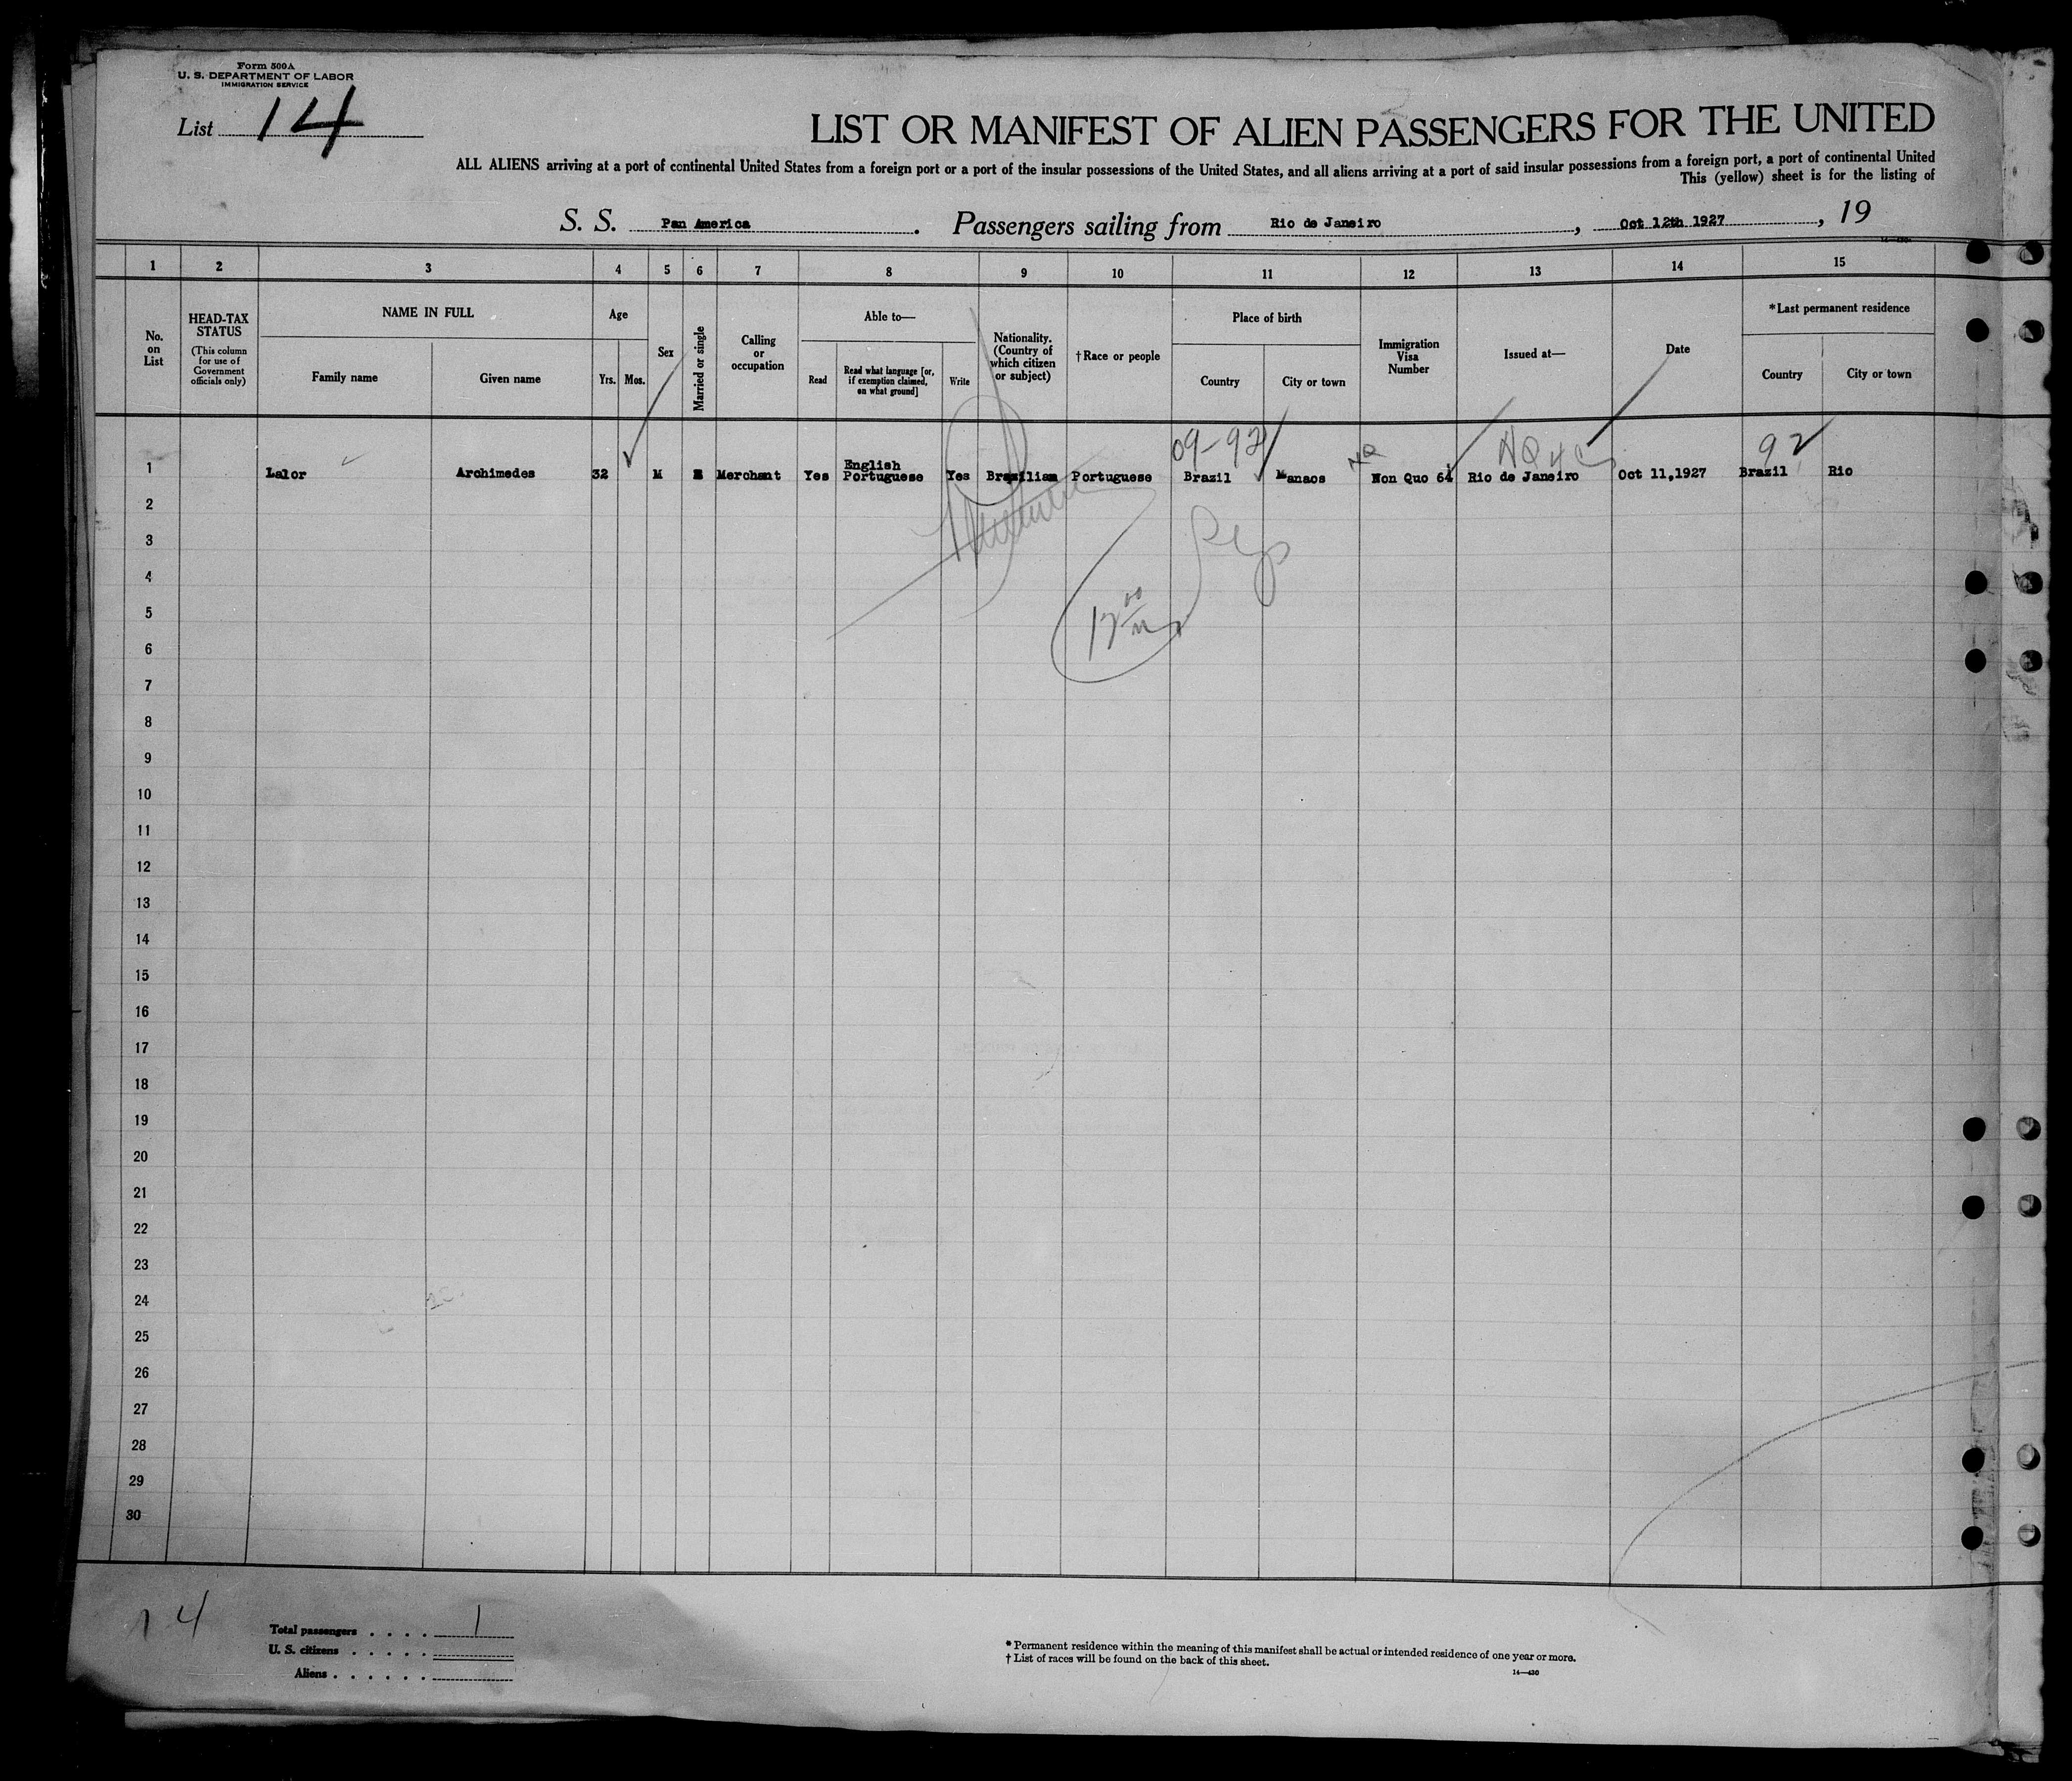 Form 500A
U. S. DEPARTMENT OF LABOR
IMMIGRATION SERVICE
List 14
LIST OR MANIFEST OF ALIEN PASSENGERS FOR THE UNITED
ALL ALIENS arriving at a port of continental United States from a foreign port or a port of the insular possessions of the United States, and all aliens arriving at a port of said insular possessions from a foreign port, a port of continental United
This (yellow) sheet is for the listing of
S. S. Pan America. Passengers sailing from Rio de Janeiro, Oct 12th 1927, 19
1 2 3 4 5 6 7 8 9 10 11 12 13 14 15
No. on List
HEAD-TAX STATUS
(This column for use of Government officials only)
NAME IN FULL
Family name
Given name
Age
Yrs. Mos.
Sex
Married or single
Calling or occupation
Able to—
Read
Read what language [or, if exemption claimed, on what ground]
Write
Nationality. (Country of which citizen or subject)
†Race or people
Place of birth
Country
City or town
Immigration Visa Number
Issued at—
Date
*Last permanent residence
Country
City or town
09-92 NQ 92
1 Lalor Archimedes 32 M Merchant Yes English Portuguese Yes Brazilian Portuguese Brazil Manaos Non Quo 64 Rio de Janeiro Oct 11,1927 Brazil Rio
2
3
4
5
6
7
8
9
10
11
12
13
14
15
16
17
18
19
20
21
22
23
24
25
26
27
28
29
30
14
Total passengers . . . . 1
U. S. citizens . . . . .
Aliens . . . . . .
* Permanent residence within the meaning of this manifest shall be actual or intended residence of one year or more.
† List of races will be found on the back of this sheet.
14—430